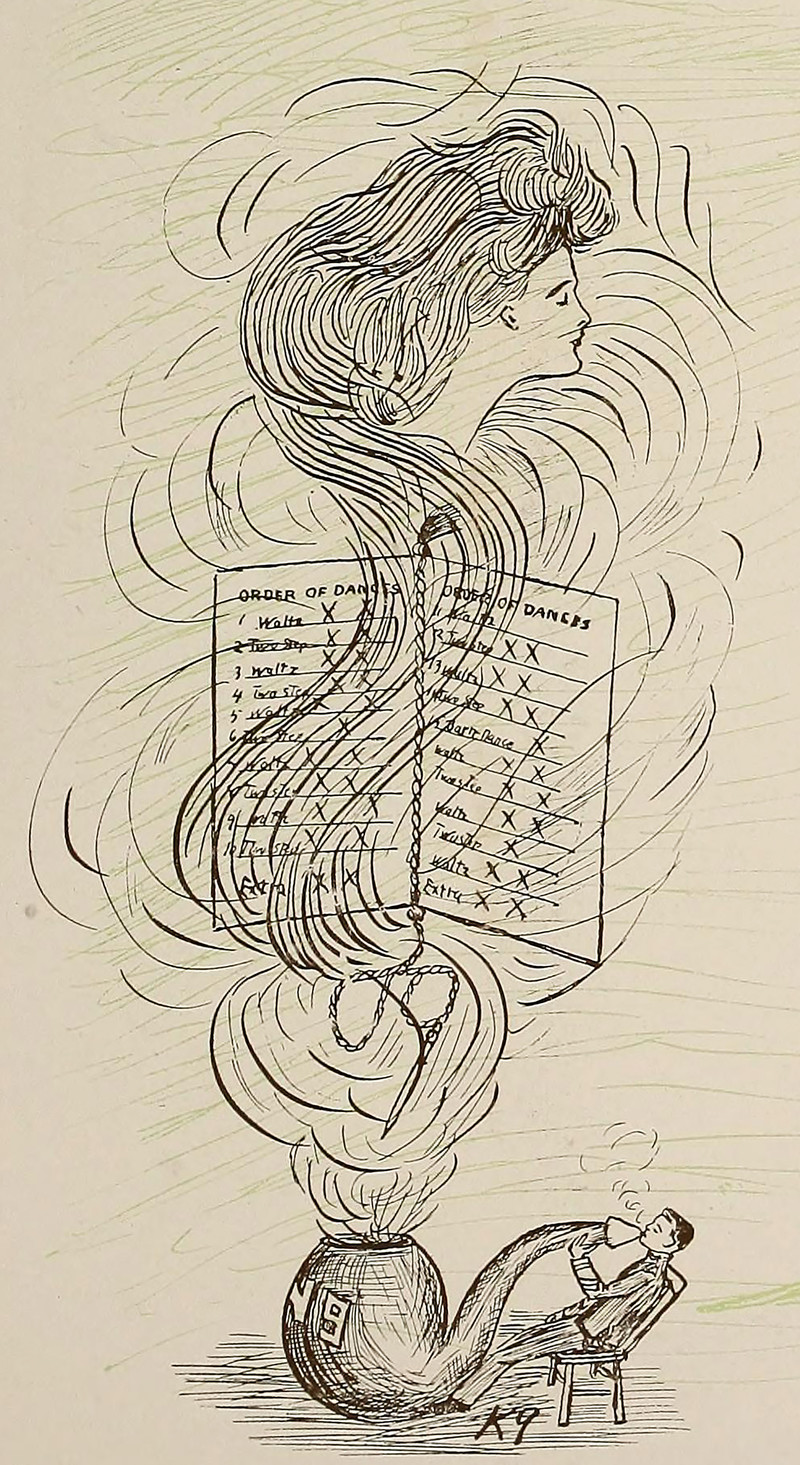 ORDER OF DANCES
1 Waltz X X
2 Two Step X X
3 Waltz X X
4 Two Step X X
5 Waltz X X
6 Two Step X
Waltz X X
Two Step X X
9 Waltz X X
10 Two Step X X
Extra X X
ORDER OF DANCES
11 Waltz
12 Two Step X X
13 Waltz X X
Two Step X X
Barn Dance X
Waltz X X
Two Step X X
Waltz X X
Two Step X
Waltz X X
Extra X X
K9